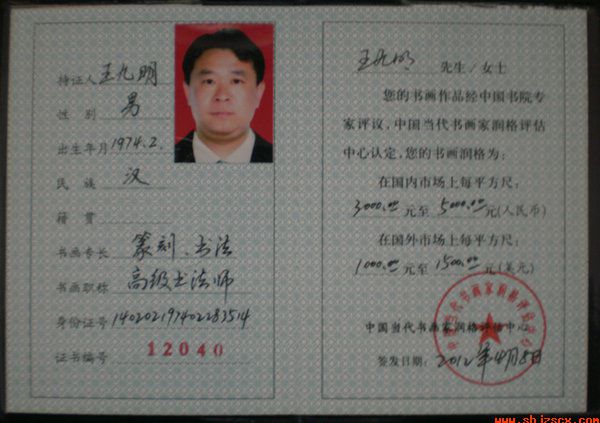 持证人 王九明
性别 男
出生年月 1974.2.
民族 汉
籍贯
书画专长 篆刻、书法
书画职称 高级书法师
身份证号 140202197402283514
证书编号 12040
王九明 先生/女士
您的书画作品经中国书院专
家评议,中国当代书画家润格评估
中心认定,您的书画润格为:
在国内市场上每平方尺:
3000.00元至5000.00元(人民币)
在国外市场上每平方尺:
1000.00元至1500.00元(美元)
中国当代书画家润格评估中心
签发日期: 2012年4月8日
www.shjzscx.com